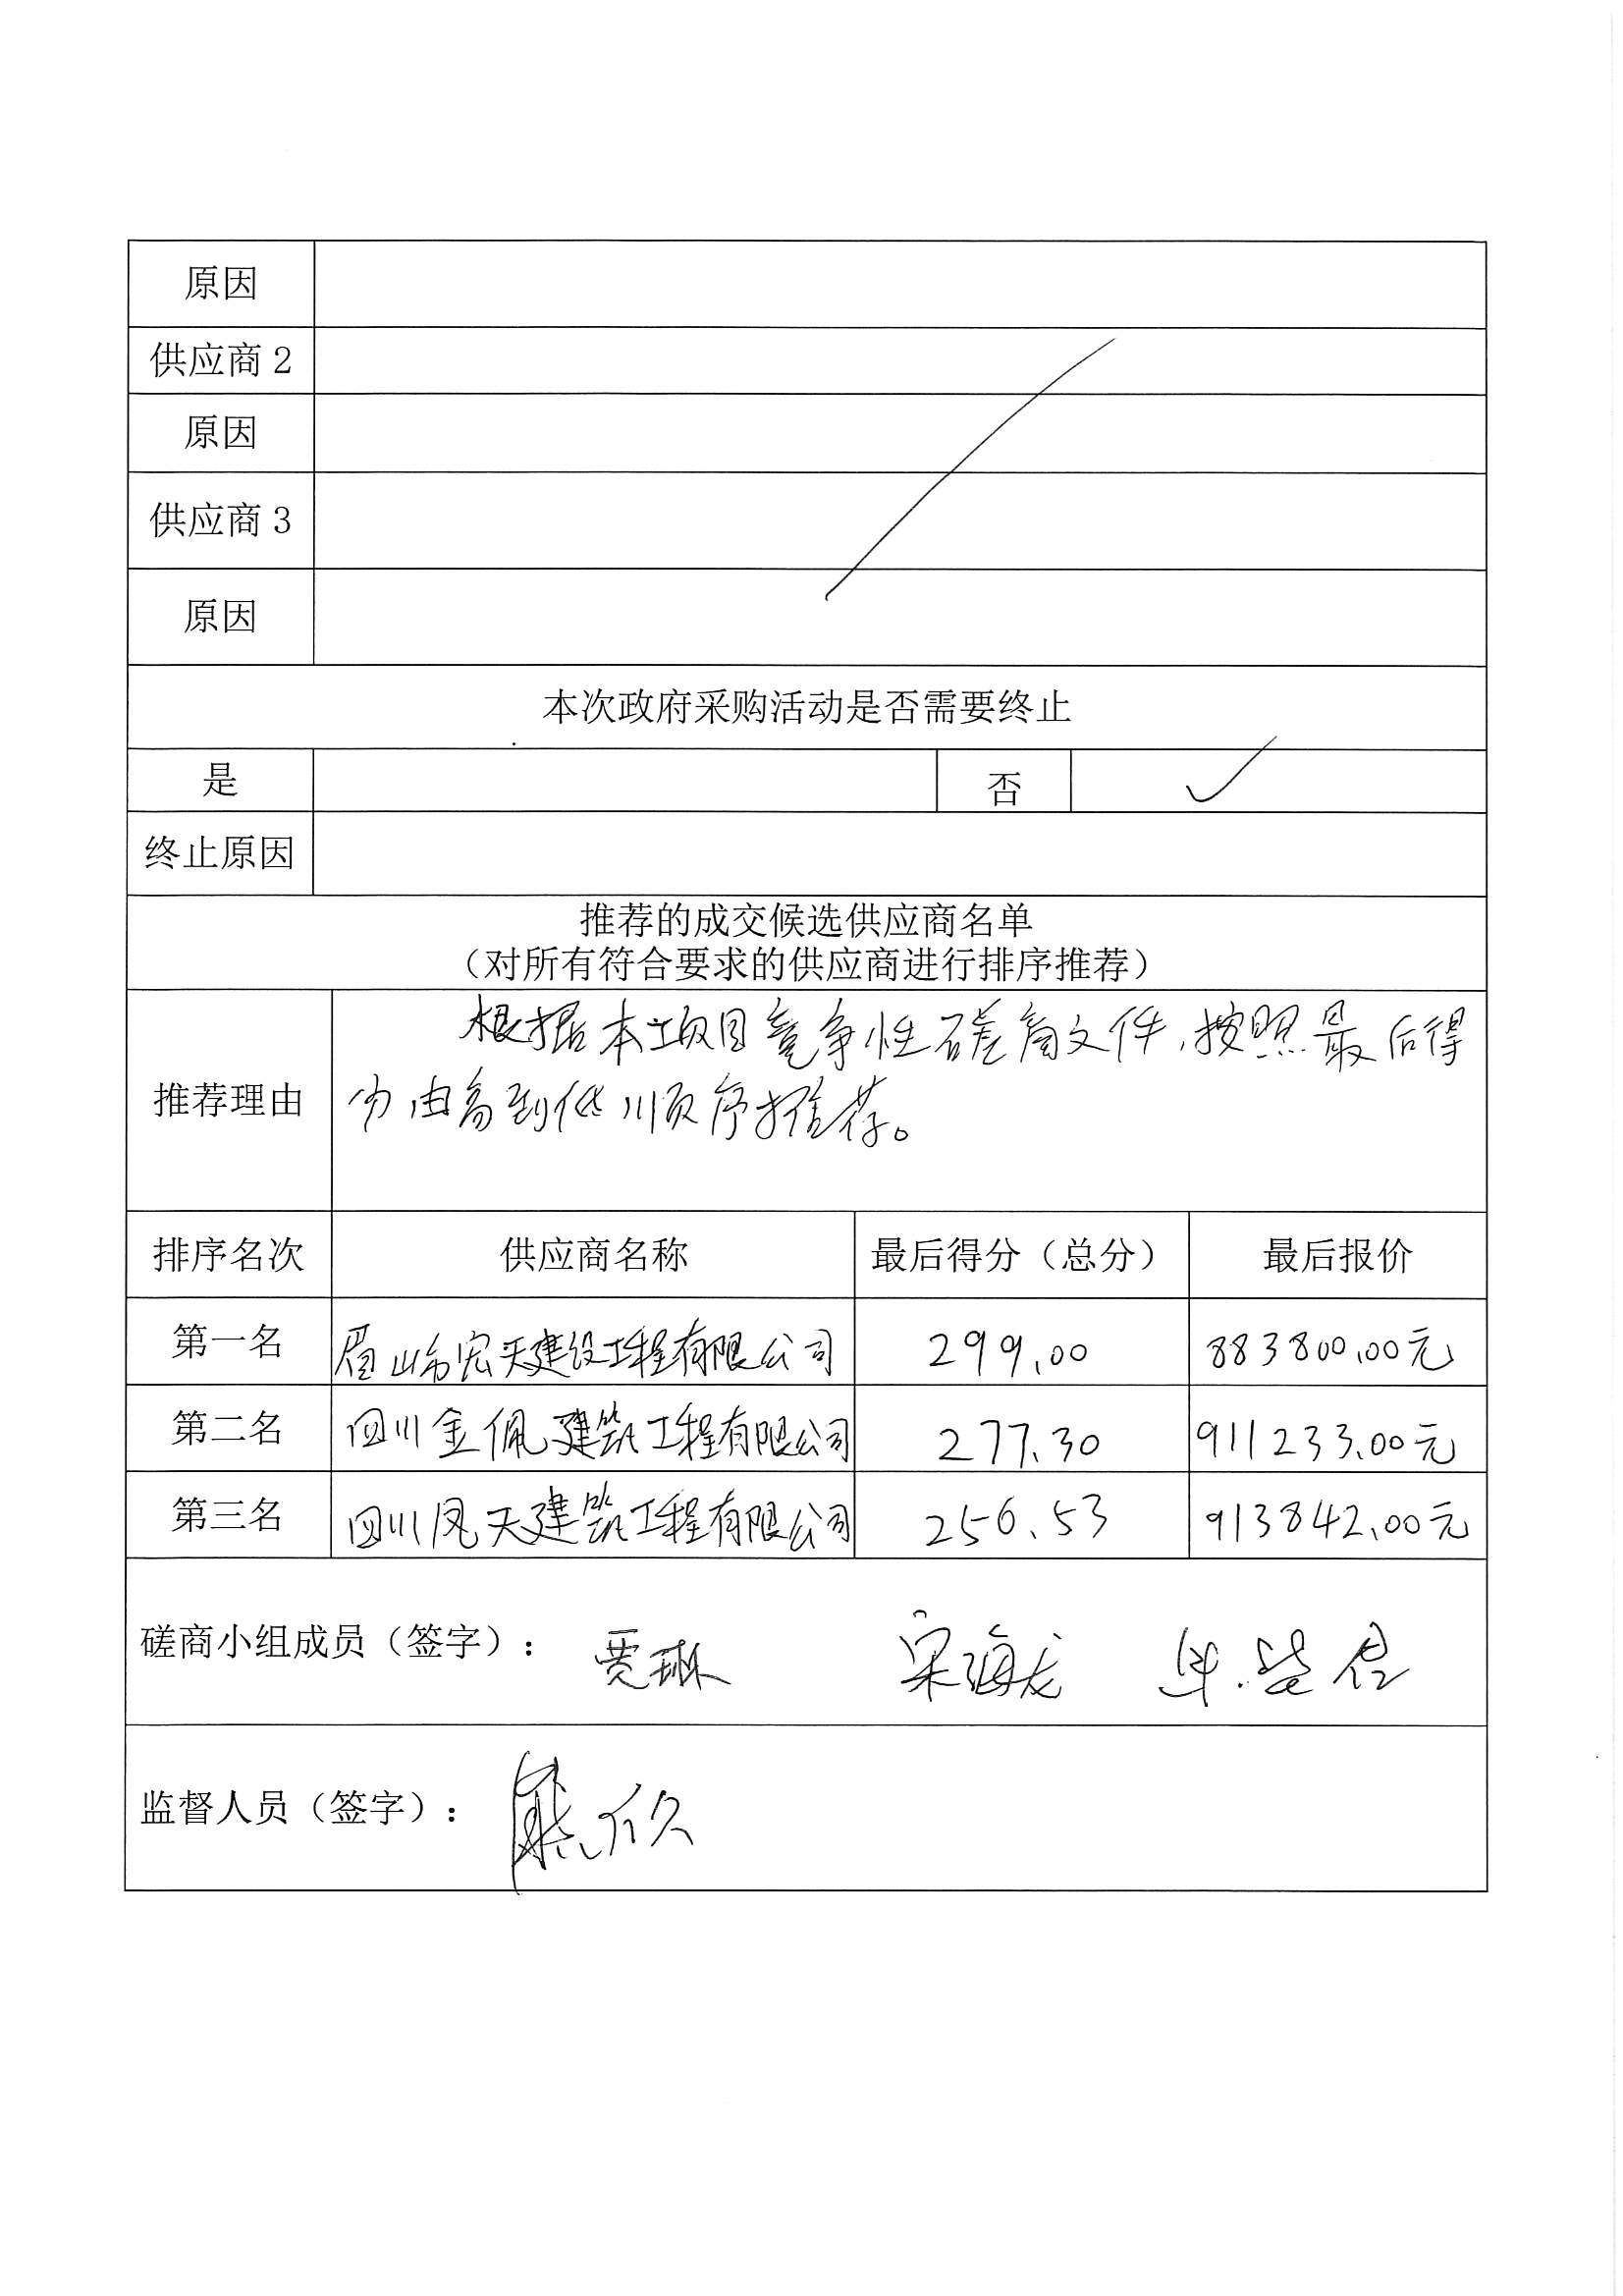 原因
供应商2
原因
供应商3
原因
本次政府采购活动是否需要终止
是 否 ✓
终止原因
推荐的成交候选供应商名单
（对所有符合要求的供应商进行排序推荐）
推荐理由
根据本项目竞争性磋商文件，按照最后得
分由高到低顺序推荐。
排序名次 供应商名称 最后得分（总分） 最后报价
第一名 眉山市宏天建设工程有限公司 299.00 883800.00元
第二名 四川金佩建筑工程有限公司 277.30 911233.00元
第三名 四川凤天建筑工程有限公司 256.53 913842.00元
磋商小组成员（签字）： 贾琳 宋海龙
监督人员（签字）：